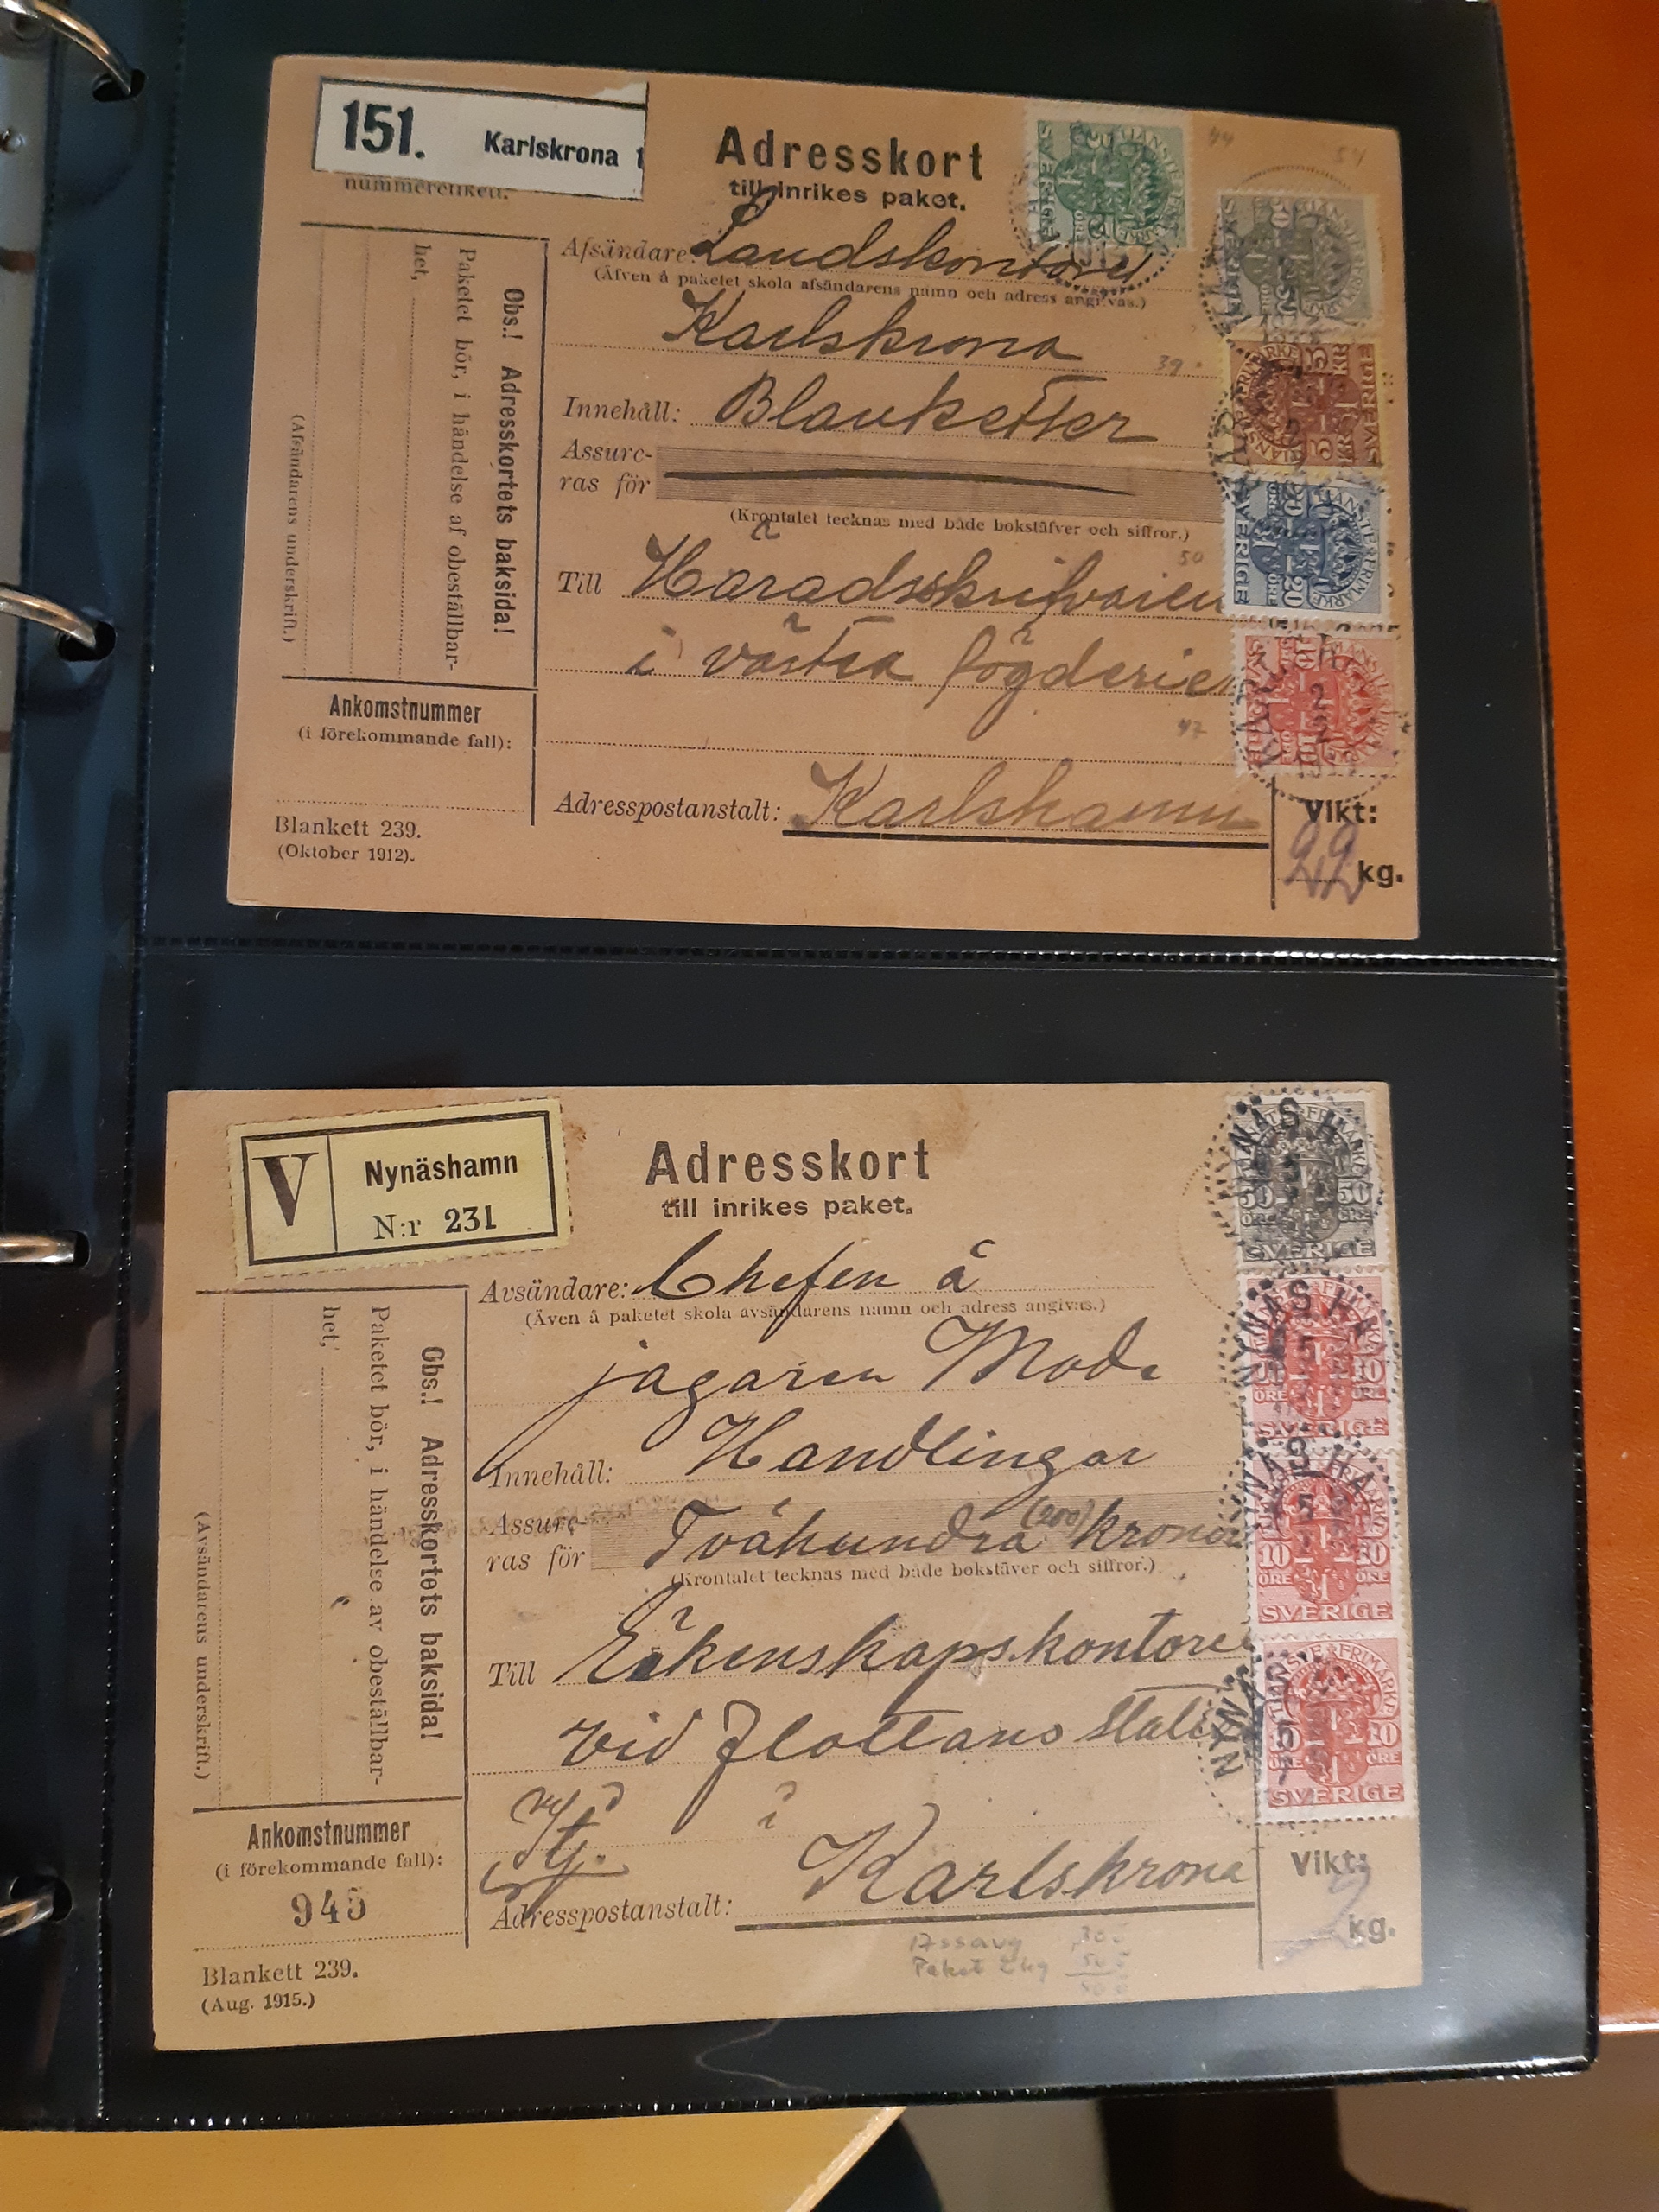 151. Karlskrona 1
nummeretikett.
Adresskort
till inrikes paket.
Afsändare Landskontoret
(Äfven å paketet skola afsändarens namn och adress angifvas.)
Karlskrona
Innehåll: Blanketter
Assure-
ras för
(Krontalet tecknas med både bokstäfver och siffror.)
Till Häradsskrifvaren
i västra fögderie
Adresspostanstalt: Karlshamn
Vikt:
22 kg.
Obs.! Adresskortets baksida!
Paketet bör, i händelse af obeställbar-
het,
(Afsändarens underskrift.)
Ankomstnummer
(i förekommande fall):
Blankett 239.
(Oktober 1912).
44
54
39
50
42
TJÄNSTEFRIMÄRKE
SVERIGE
5 KR
20 ÖRE
10 ÖRE
V Nynäshamn
N:r 231
Adresskort
till inrikes paket.
Avsändare: Chefen å
(Även å paketet skola avsändarens namn och adress angivas.)
jagaren Mode
Innehåll: Handlingar
Assure-
ras för Tvåhundra (200) kronor
(Krontalet tecknas med både bokstäver och siffror.)
Till Räkenskapskontore
vid Flottans stati
i
Adresspostanstalt: Karlskrona
Vikt:
2 kg.
Assavg 30
Paket 2kg 50
Obs.! Adresskortets baksida!
Paketet bör, i händelse av obeställbar-
het,
(Avsändarens underskrift.)
Ankomstnummer
(i förekommande fall):
945
Blankett 239.
(Aug. 1915.)
50 ÖRE 50 ÖRE
SVERIGE
10 ÖRE
SVERIGE
10 ÖRE 10 ÖRE
SVERIGE
10 10 ÖRE
SVERIGE